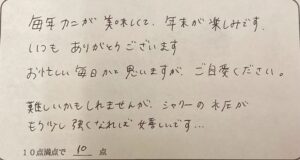 毎年カニが美味しくて、年末が楽しみです。
いつもありがとうございます
お忙しい毎日かと思いますが、ご自愛ください。
難しいかもしれませんが、シャワーの水圧が
もう少し強くなれば嬉しいです…
10点満点で 10 点